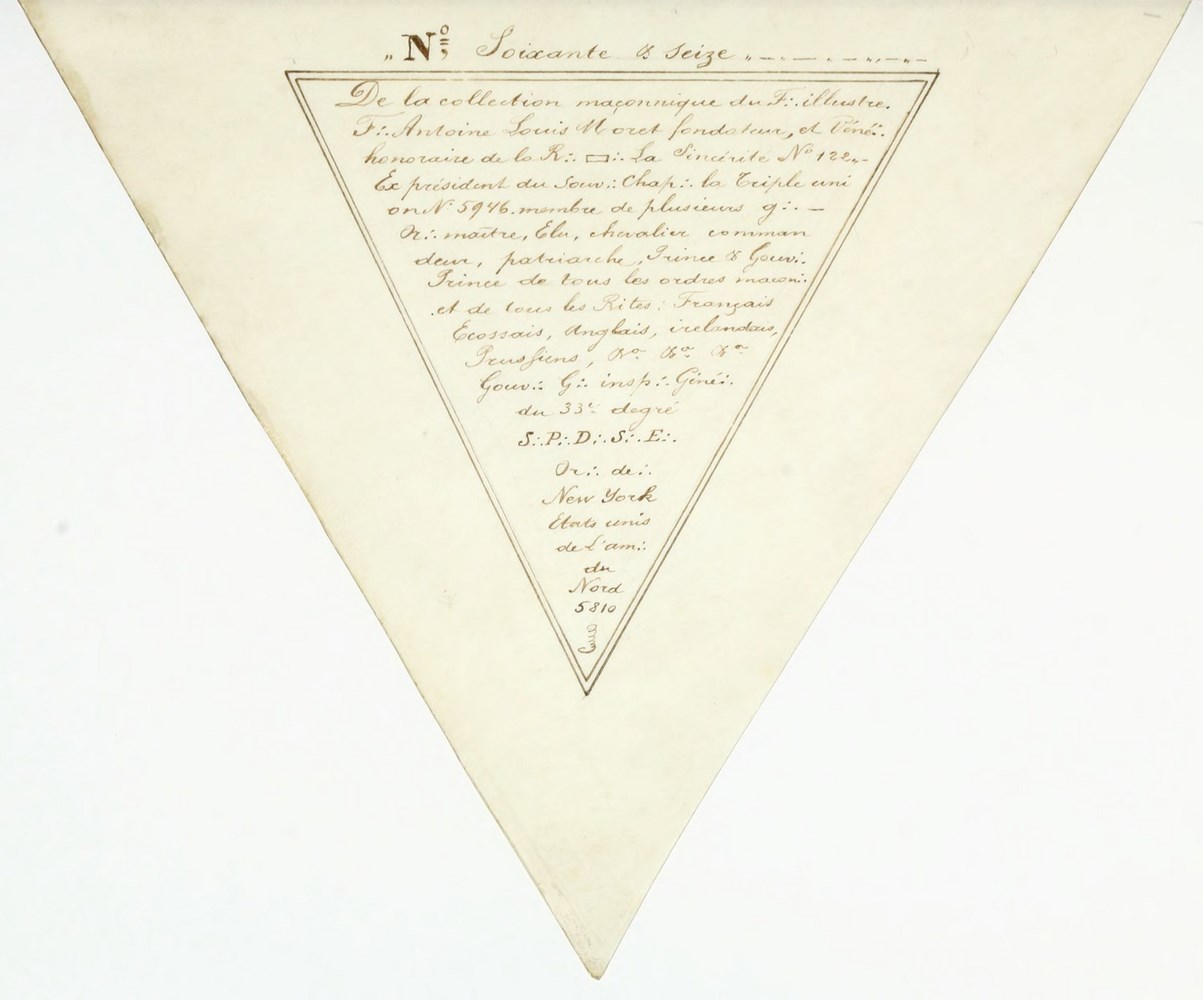 „ Nº Soixante & seize „
De la collection maçonnique du F∴ illustre.
F∴ Antoine Louis Moret fondateur, et Véné∴
honoraire de la R∴ ▭∴ La Sincérité Nº 122„-
Ex président du Souv∴ Chap∴ la Triple uni
on Nº 5946. membre de plusieurs g∴ —
Or∴ maître, Elu, chevalier comman
deur, patriarche, Prince & Gouv∴
Prince de tous les ordres macon∴
et de tous les Rites: Français
Ecossais, Anglais, irelandais,
Prussiens, &ª &ª &ª
Gouv∴ G∴ insp∴ Géné∴
du 33e degré
S∴P∴D∴S∴E∴
Or∴ de∴
New York
Etats unis
de L'am∴
du
Nord
5810